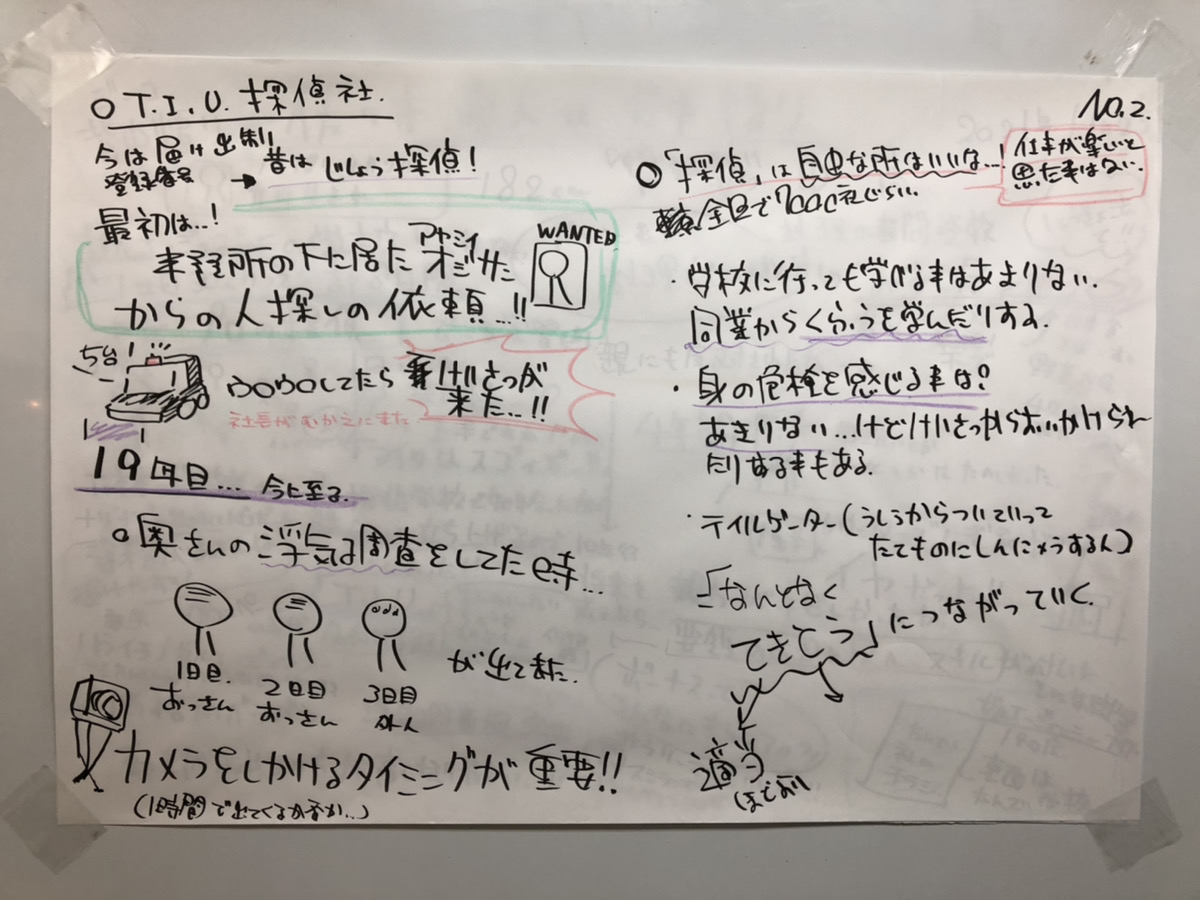 ○ T.I.U. 探偵社.
今は届け出制!
登録番号
→ 昔は じしょう探偵!
最初は..!
事務所の下に居た アヤシイ オジサン
からの人探しの依頼...!!
WANTED
5台!
ウロウロしてたら けいさつが
来た...!!
社長がむかえにきた
19年目... 今に至る.
○奥さんの浮気調査をしてた時...
1日目. おっさん
2日目 おっさん
3日目 外人
が出てきた.
カメラをしかけるタイミングが重要!!
(1時間で出てくるか否か...)
No.2.
○「探偵」は自由な所はいいな...!
仕事が楽しいと
思った事はない.
全国で7000社ぐらい.
・学校に行っても学べる事はあまりない.
同業からくふうを学んだりする.
・身の危険を感じる事は?
あまりない...けどけいさつからおいかけられ
たりする事もある.
・テイルゲーター(うしろからついていって
たてものにしんにゅうする人)
「なんとなく
てきとう」につながっていく.
適当
(ほどよい